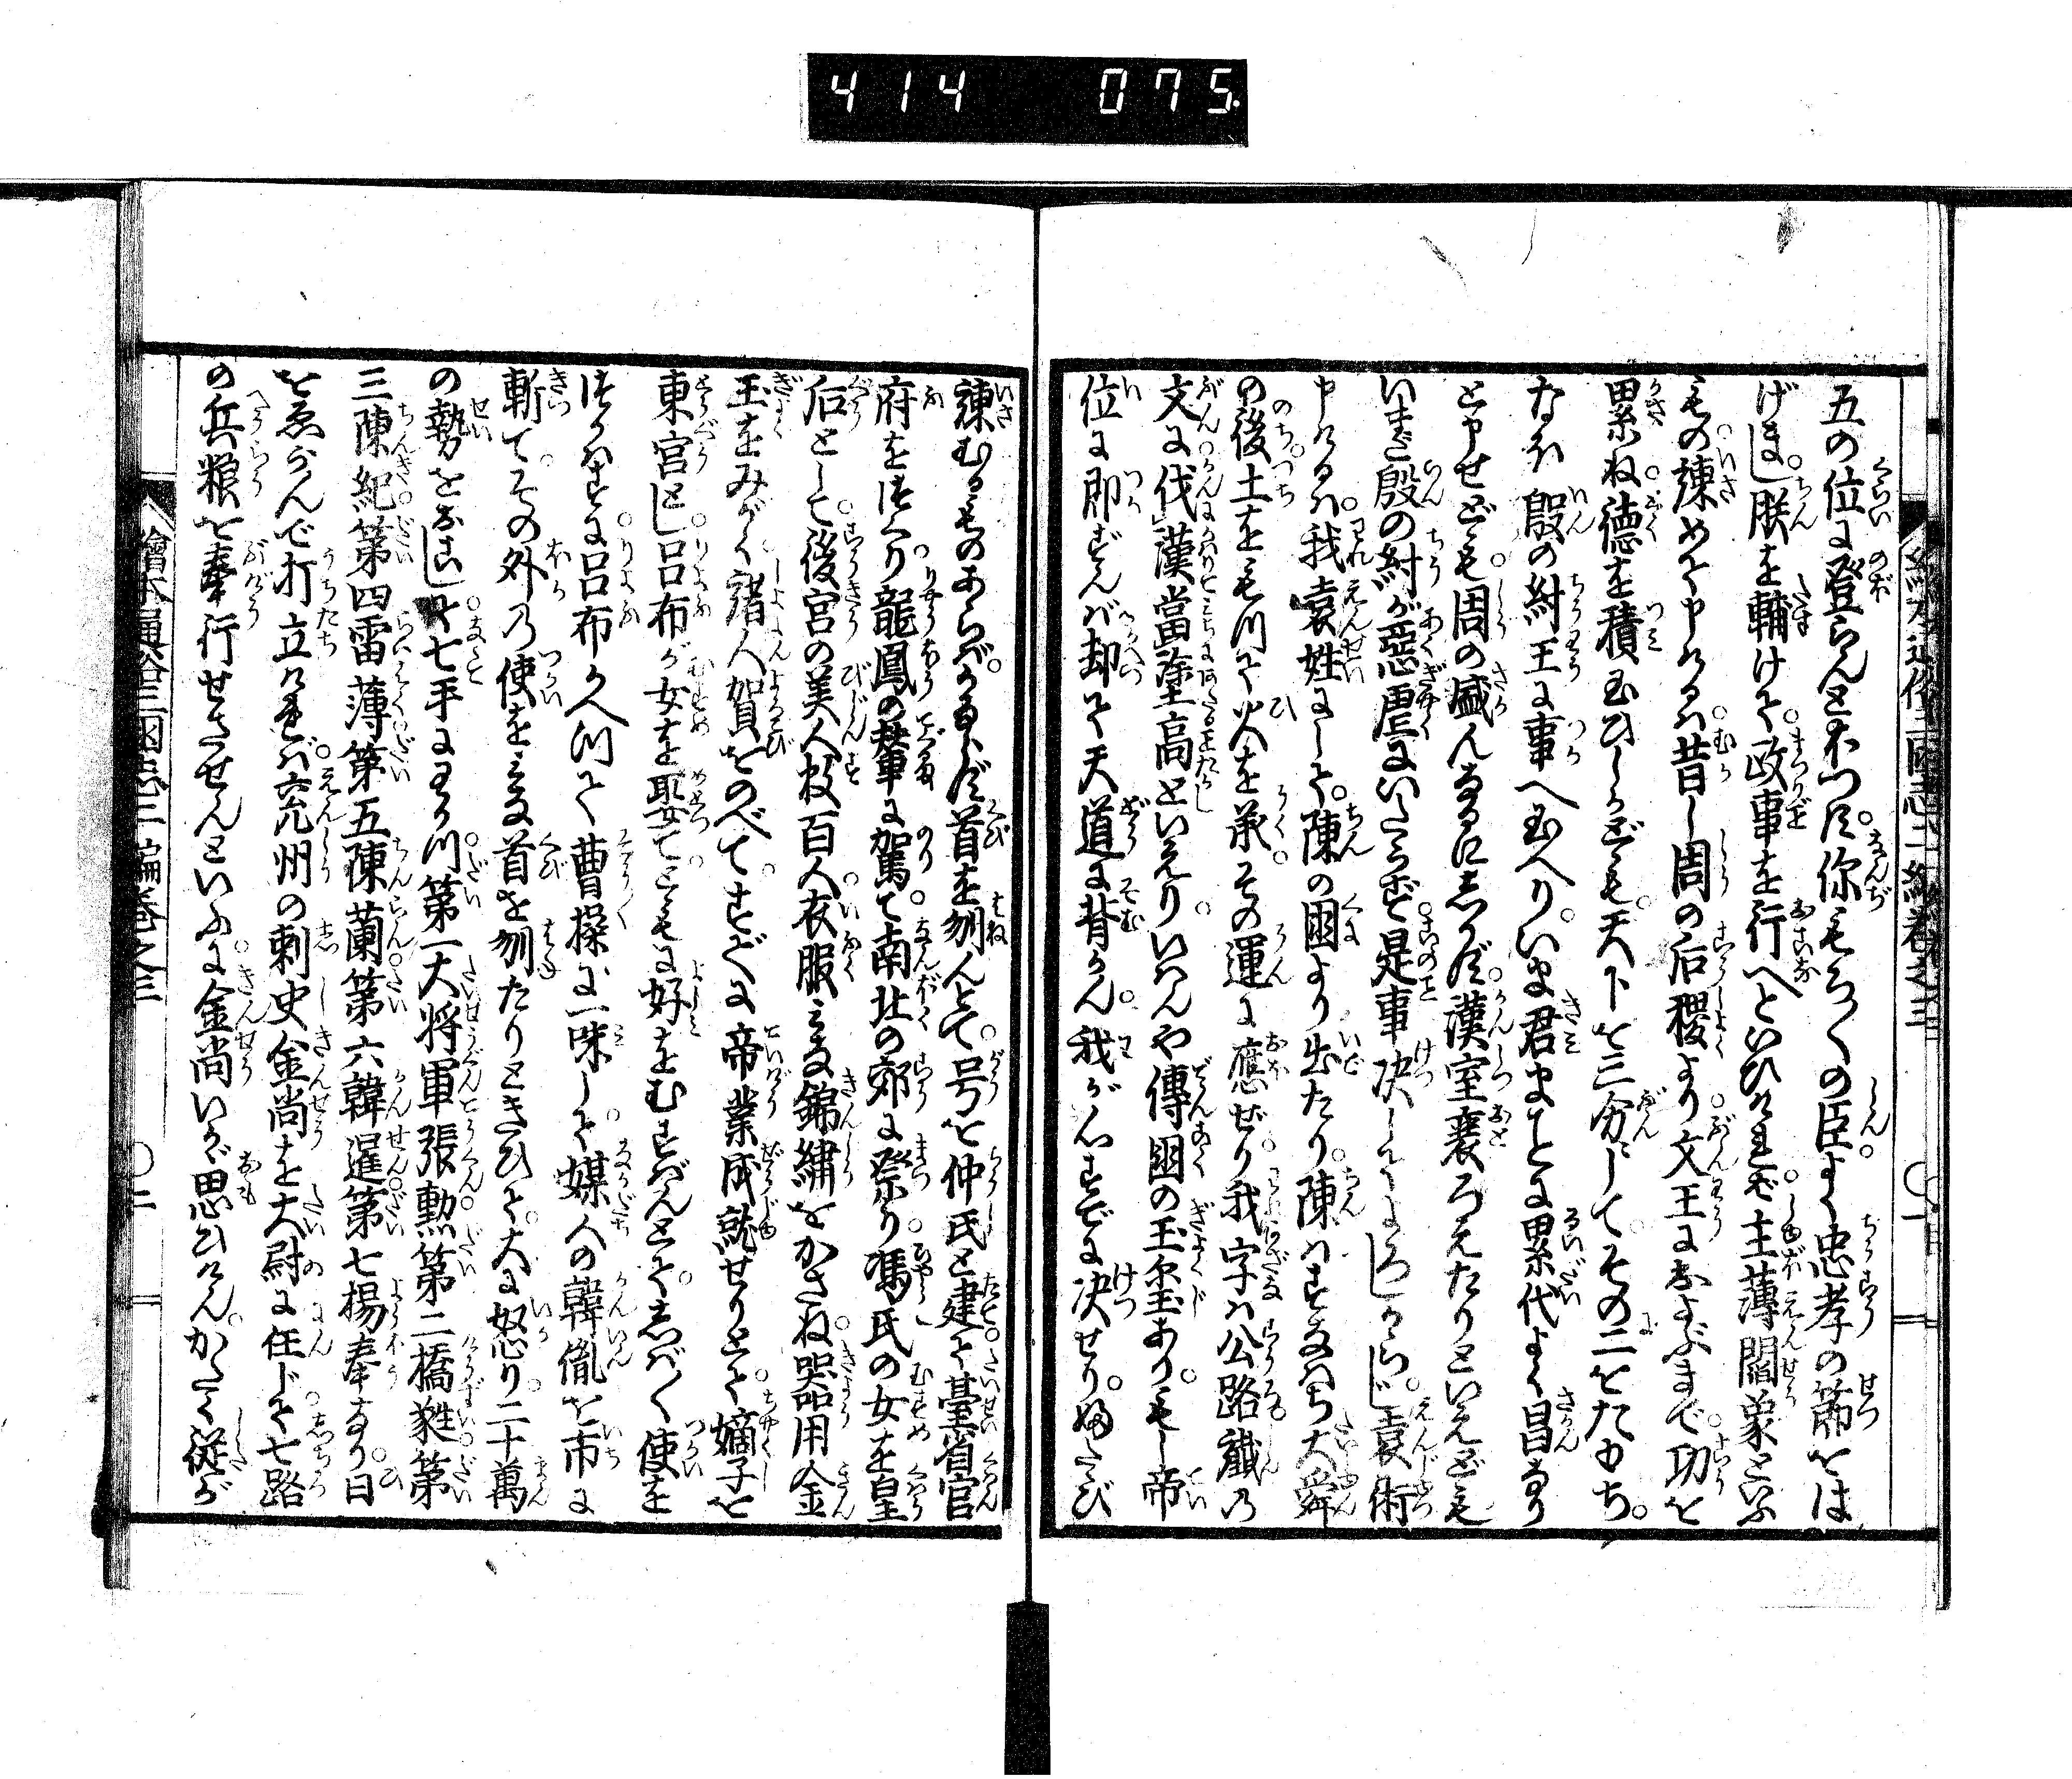 414 075.
五の位に登らんと欲す。你もろ〱の臣。よく忠孝の節をは
げまし。朕を輔けて。政事を行へといひければ。主薄閻象といふ
もの。諫めて申けるは。昔し周の后稷より。文王におよぶまで。功を
累ね。徳を積玉ひしかども。天下を三分して。その二をたもち。
なほ殷の紂王に事へ玉へり。いま君まことに累代よく昌なり
と申せども。周の盛んなるに志かず。漢室衰ろえたりといえども
いまだ殷の紂が惡虐にいたらず。是事决してよろしからじ。袁術
申けるは。我袁姓にして。陳の國より出たり。陳はすなはち大舜
の後。土をもつて火を承。その運に應ぜり。我字は公路。讖の
文に。代漢當塗高といえり。いはんや傳國の玉璽あり。もし帝
位に即ずんば。却て天道に背かん。我が心すでに决せり。ふたゝび
諫むるものあらば。かならず首を刎んとて。号を仲氏と建て。臺省官
府をつくり。龍鳳の輦に駕て。南北の郊に祭り。馮氏の女を皇
后として。後宮の美人数百人。衣服みな錦繍をかさね。器用金
玉をみがく。諸人賀をのべて。すでに帝業成就せりとて。嫡子を
東宮とし。呂布が女を娶て。ともに好をむすばんとて。志ば〱使を
つかはすに。呂布かへつて曹操に一味して。媒人の韓胤を市に
斬て。その外乃使をみな首を刎たりときひて。大に怒り。二十萬
の勢をおこして。七手にわかつ。第一大将軍張勲。第二橋蕤。第
三陳紀。第四雷薄。第五陳蘭。第六韓暹。第七楊奉なり。日
をゑらんで打立ければ。兗州の刺史金尚を大尉に任じて。七路
の兵粮を奉行せさせんといふに。金尚いかゞ思ひけん。かたく従が
繪本通俗三國志二編卷之三 〇一
繪本通俗三國志二編卷之三 〇二